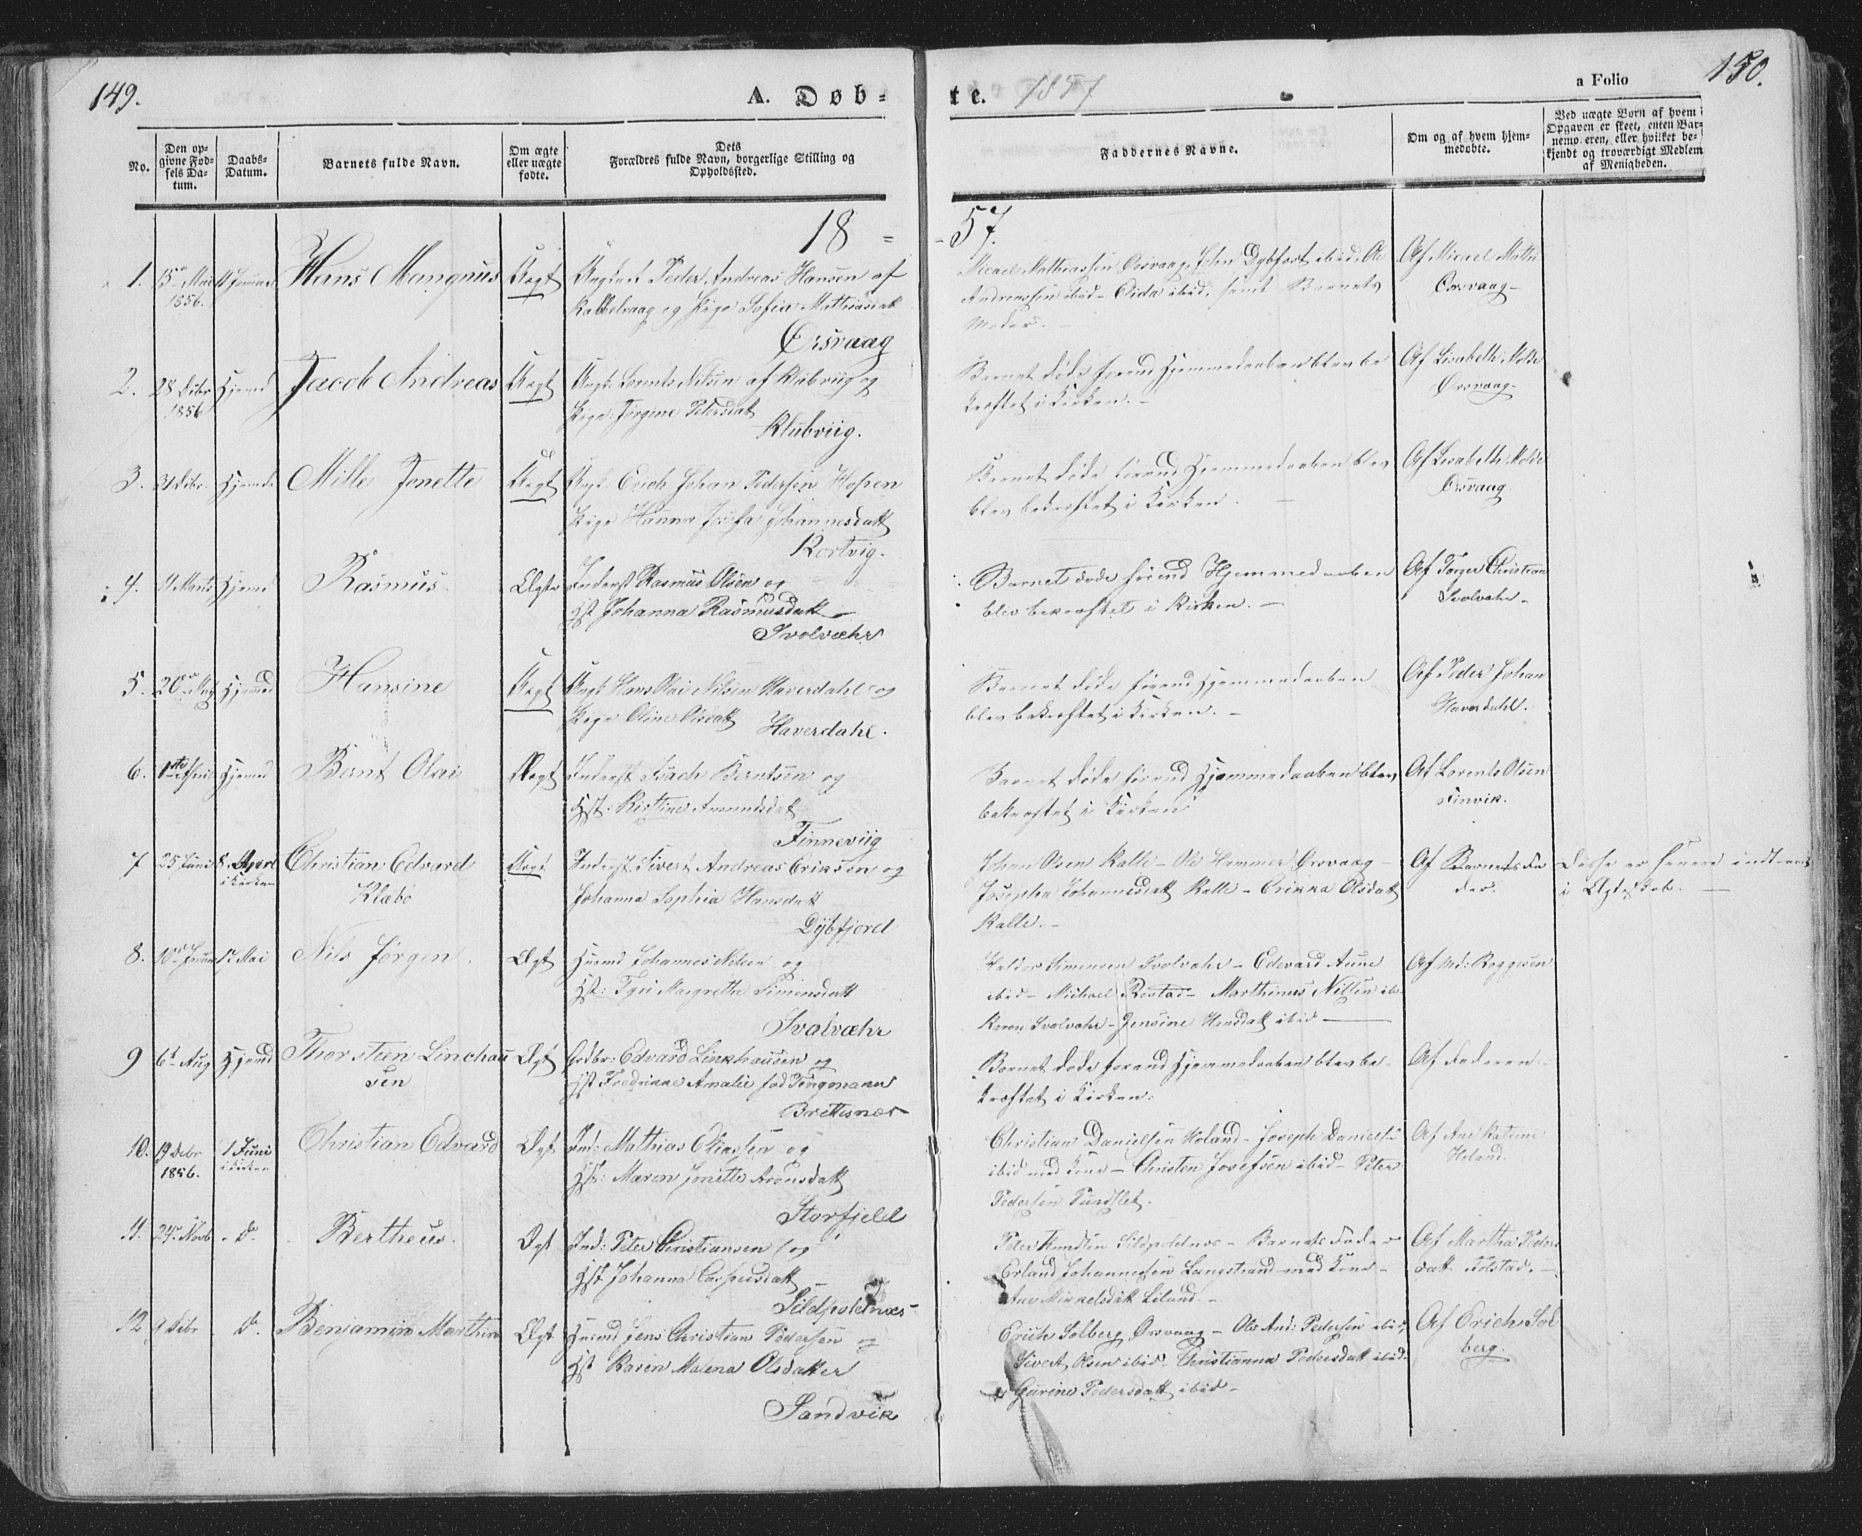 149.
A. Døb-
te.
1857
a Folio
150.
No.
Den op-
givne Fød-
sels Da-
tum.
Daabs-
Datum.
Barnets fulde Navn.
Om ægte
eller uægte
fødte.
Dets
Forældres fulde Navn, borgerlige Stilling og
Opholdssted.
Faddernes Navne.
Om og af hvem hjem-
medøbte.
Ved uægte Børn af hvem
Opgaven er skeet, enten Bar-
nemoderen, eller hvilket be-
kjendt og troværdigt Medlem
af Menigheden.
18 =
- 57.
1.
1856.
Hans Magnus
Uægt
Ungkarl Peder Andreas Hansen af
Kabbelvaag og Pige Sofia Mathiasdat
Ørsvaag
Micael Mathiassen Orsvaag, John Dybfest ibid, Ole
Andreassen ibid - ibid, samt Barnets
Moder. -
Af Micael Mathi
Orsvaag -
2.
28 Debr
1856
Hjemd
Jacob Andreas
Uægt
Ungk: Lorents Nilsen af Klubviig og
Pige Jørgine Petersdat
Klubviig.
Barnet døde førend Hjemmedaaben blev be
kræftet i Kirken. -
Af Lisabeth Molde
Orsvaag -
3.
31 Debr.
Hjemd
Mille Jonette
Uægt
Ungk: Erich Johan Pedersen Hopen
Pige Hanna Josefa Johannesdatt
Kortvig.
Barnet døde førend Hjemmedaaben blev
blev bekræftet i Kirken. -
Af Lisabeth Molde
Orsvaag
4.
11 Marts
Hjemd
Rasmus.
Ægte
Inderst Rasmus Olsen og
Hst Johanna Rasmusdatt -
Svolvæhr
Barnet døde førend Hjemmedaaben
blev bekræftet i Kirken. -
Af Torger Christian
Svolvæhr -
5.
Hjemd
Hansine
Uægt
Ungk: Hans Olai Nilsen Haverdahl og
Pige Oline Olsdatt
Haverdahl.
Barnet døde førend Hjemmedaaben
blev bekræftet i Kirken. -
Af Peder Johan
Haverdahl.
6.
1ste April
Hjemd
Bernt Olai
Ægt
Inderst Isach Berntsen og
Hst: Kistine Amundsdat
Finneviig
Barnet døde førend Hjemmedaaben blev
bekræftet i Kirken
Af Lorents Olsen
Finvik.
7
25 Juni
8. April
i Kirken
Christian Edvard
Klæbo
Uægt
Inderst Sivert Andreas Eriksen og
Johanna Sophia Hansdatt
Dybfjord
Johan Olsen Kalle - Ole Hammer Orsvaag -
Josepha Johannesdatt Kalle - Erikka Olsdatt
Kalle. -
Af Barnets Fa
der.
Disse er senere indtraadt
i Ægteskab. -
8.
17 Mai
Nils Jørgen.
Ægt
Huusmd Johannes Nilsen og
Hst: Margrethe Simensdatt
Svolvæhr
Haldor Simensen Svolvæhr - Edevard Aune
ibid - Michael Rostad - Marthinus Nilsen ibid
Karen Svolvæhr - Jensine Hansdatt ibid -
Af Md: Boggesen
9
6t Aug
Hjemd
Thorstein Linchau
sen
Ægt
Godbr: Edvard Linkhausen og
Hst Fredrikke Amalie fød Tengmann
Brettesnæs
Barnet døde førend Hjemmedaaben blev be-
kræftet i Kirken.
Af Faderen -
10.
19 Debr
1856.
1 Juni
i Kirken
Christian Edvard
Ægt
Ind: Mathias Eliassen og
Hst: Maren Jonette Aronsdatt
Storfjeld
Christian Danielsen Holand - Joseph Daniels
ibid med Kone - Christen Josefsen ibid - Peter
Pedersen Pundslet.
Af Ane Katrine
Holand
11.
24 Novb
- d.
Bertheus.
Ægt
Ind: Peter Christiansen og
Hst Johanna Caspersdatt
Sildpoldnæs -
Peter Knudsen Sildpoldnæs - Barnets Fader
Erland Johannessen Langstrand med Kone -
Ane Mikkelsdatt Liland. -
Af Martha Peders
datt Rolstad. -
12
9 Debr
d.
Benjamin Marthin
Ægt
Huusmd Jens Christian Pedersen og
Hst Karen Malena Olsdatter
Sandvik
Erich Solberg Orsvaag - Ole And: Pedersen ibid,
Sivert Olsen ibid - Christianna Pedersdatt ibid -
Gurine Pedersdatt ibid -
Af Erich Sol
berg.